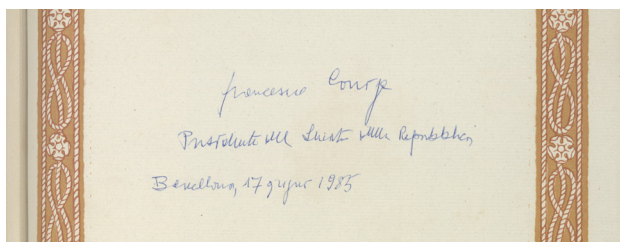 Francesco Cossiga
Presidente del Senato della Repubblica
Barcellona, 17 giugno 1985